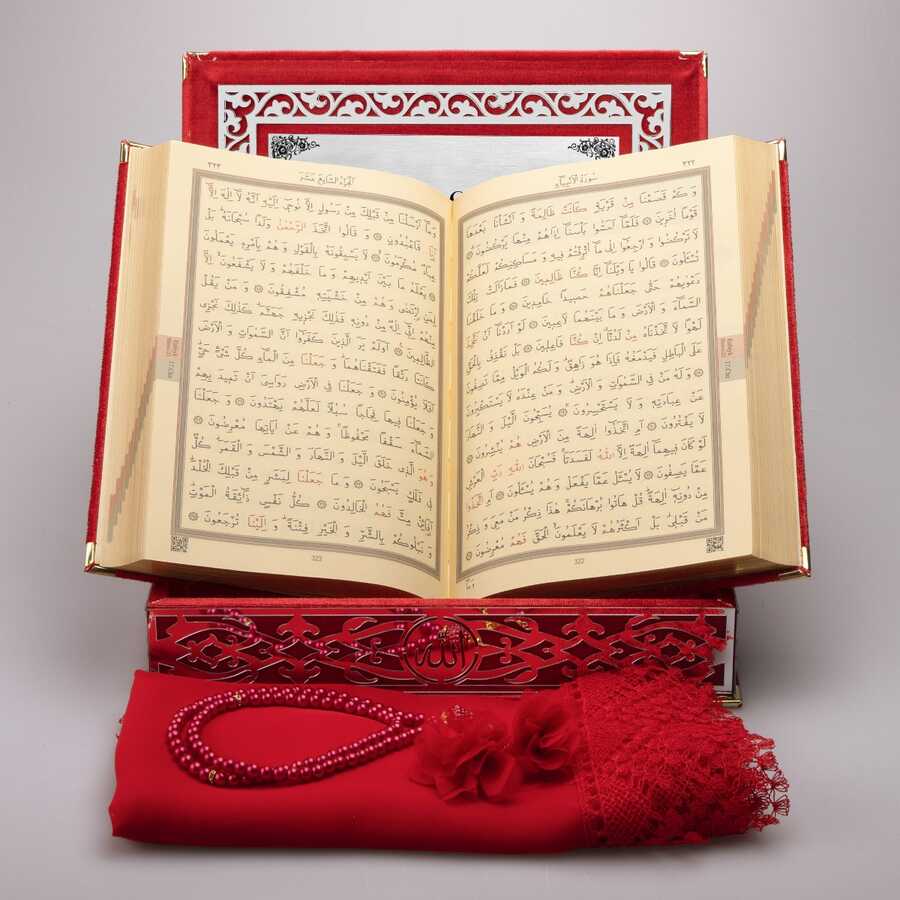 ٣٢٢
سُورَةُ الْاَنْبِيَاءِ
وَكَمْ قَصَمْنَا مِنْ قَرْيَةٍ كَانَتْ ظَالِمَةً وَاَنْشَأْنَا بَعْدَهَا
قَوْمًا اٰخَرِينَ ۞ فَلَمَّا اَحَسُّوا بَأْسَنَا اِذَا هُمْ مِنْهَا يَرْكُضُونَ ۞
لَا تَرْكُضُوا وَارْجِعُوا اِلٰى مَا اُتْرِفْتُمْ فِيهِ وَمَسَاكِنِكُمْ لَعَلَّكُمْ
تُسْئَلُونَ ۞ قَالُوا يَا وَيْلَنَا اِنَّا كُنَّا ظَالِمِينَ ۞ فَمَا زَالَتْ تِلْكَ
دَعْوٰيهُمْ حَتّٰى جَعَلْنَاهُمْ حَصِيدًا خَامِدِينَ ۞ وَمَا خَلَقْنَا
السَّمَاءَ وَالْاَرْضَ وَمَا بَيْنَهُمَا لَاعِبِينَ ۞ لَوْ اَرَدْنَا اَنْ نَتَّخِذَ
لَهْوًا لَاتَّخَذْنَاهُ مِنْ لَدُنَّا اِنْ كُنَّا فَاعِلِينَ ۞ بَلْ نَقْذِفُ بِالْحَقِّ
عَلَى الْبَاطِلِ فَيَدْمَغُهُ فَاِذَا هُوَ زَاهِقٌ وَلَكُمُ الْوَيْلُ مِمَّا تَصِفُونَ
۞ وَلَهُ مَنْ فِي السَّمٰوَاتِ وَالْاَرْضِ وَمَنْ عِنْدَهُ لَا يَسْتَكْبِرُونَ
عَنْ عِبَادَتِهِ وَلَا يَسْتَحْسِرُونَ ۞ يُسَبِّحُونَ الَّيْلَ وَالنَّهَارَ
لَا يَفْتُرُونَ ۞ اَمِ اتَّخَذُوا اٰلِهَةً مِنَ الْاَرْضِ هُمْ يُنْشِرُونَ ۞
لَوْ كَانَ فِيهِمَا اٰلِهَةٌ اِلَّا اللّٰهُ لَفَسَدَتَا فَسُبْحَانَ اللّٰهِ رَبِّ الْعَرْشِ
عَمَّا يَصِفُونَ ۞ لَا يُسْئَلُ عَمَّا يَفْعَلُ وَهُمْ يُسْئَلُونَ ۞ اَمِ اتَّخَذُوا
مِنْ دُونِهِ اٰلِهَةً قُلْ هَاتُوا بُرْهَانَكُمْ هٰذَا ذِكْرُ مَنْ مَعِيَ وَذِكْرُ
مَنْ قَبْلِي بَلْ اَكْثَرُهُمْ لَا يَعْلَمُونَ الْحَقَّ فَهُمْ مُعْرِضُونَ ۞
322
٣٢٣
اَلْجُزْءُ السَّابِعَ عَشَرَ
وَمَا اَرْسَلْنَا مِنْ قَبْلِكَ مِنْ رَسُولٍ اِلَّا نُوحِي اِلَيْهِ اَنَّهُ لَا اِلٰهَ اِلَّا
اَنَا فَاعْبُدُونِ ۞ وَقَالُوا اتَّخَذَ الرَّحْمٰنُ وَلَدًا سُبْحَانَهُ بَلْ
عِبَادٌ مُكْرَمُونَ ۞ لَا يَسْبِقُونَهُ بِالْقَوْلِ وَهُمْ بِاَمْرِهِ يَعْمَلُونَ
۞ يَعْلَمُ مَا بَيْنَ اَيْدِيهِمْ وَمَا خَلْفَهُمْ وَلَا يَشْفَعُونَ اِلَّا
لِمَنِ ارْتَضٰى وَهُمْ مِنْ خَشْيَتِهِ مُشْفِقُونَ ۞ وَمَنْ يَقُلْ
مِنْهُمْ اِنِّي اِلٰهٌ مِنْ دُونِهِ فَذٰلِكَ نَجْزِيهِ جَهَنَّمَ كَذٰلِكَ نَجْزِي
الظَّالِمِينَ ۞ اَوَلَمْ يَرَ الَّذِينَ كَفَرُوا اَنَّ السَّمٰوَاتِ وَالْاَرْضَ
كَانَتَا رَتْقًا فَفَتَقْنَاهُمَا وَجَعَلْنَا مِنَ الْمَاءِ كُلَّ شَيْءٍ حَيٍّ
اَفَلَا يُؤْمِنُونَ ۞ وَجَعَلْنَا فِي الْاَرْضِ رَوَاسِيَ اَنْ تَمِيدَ بِهِمْ
وَجَعَلْنَا فِيهَا فِجَاجًا سُبُلًا لَعَلَّهُمْ يَهْتَدُونَ ۞ وَجَعَلْنَا
السَّمَاءَ سَقْفًا مَحْفُوظًا وَهُمْ عَنْ اٰيَاتِهَا مُعْرِضُونَ ۞
وَهُوَ الَّذِي خَلَقَ الَّيْلَ وَالنَّهَارَ وَالشَّمْسَ وَالْقَمَرَ كُلٌّ
فِي فَلَكٍ يَسْبَحُونَ ۞ وَمَا جَعَلْنَا لِبَشَرٍ مِنْ قَبْلِكَ الْخُلْدَ
اَفَاِنْ مِتَّ فَهُمُ الْخَالِدُونَ ۞ كُلُّ نَفْسٍ ذَائِقَةُ الْمَوْتِ
وَنَبْلُوكُمْ بِالشَّرِّ وَالْخَيْرِ فِتْنَةً وَاِلَيْنَا تُرْجَعُونَ ۞
323
الله